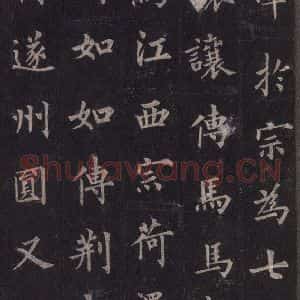 於宗為七
讓傳馬馬
江西宗荷
如如傳荊
遂州圓又
Shufawang.CN